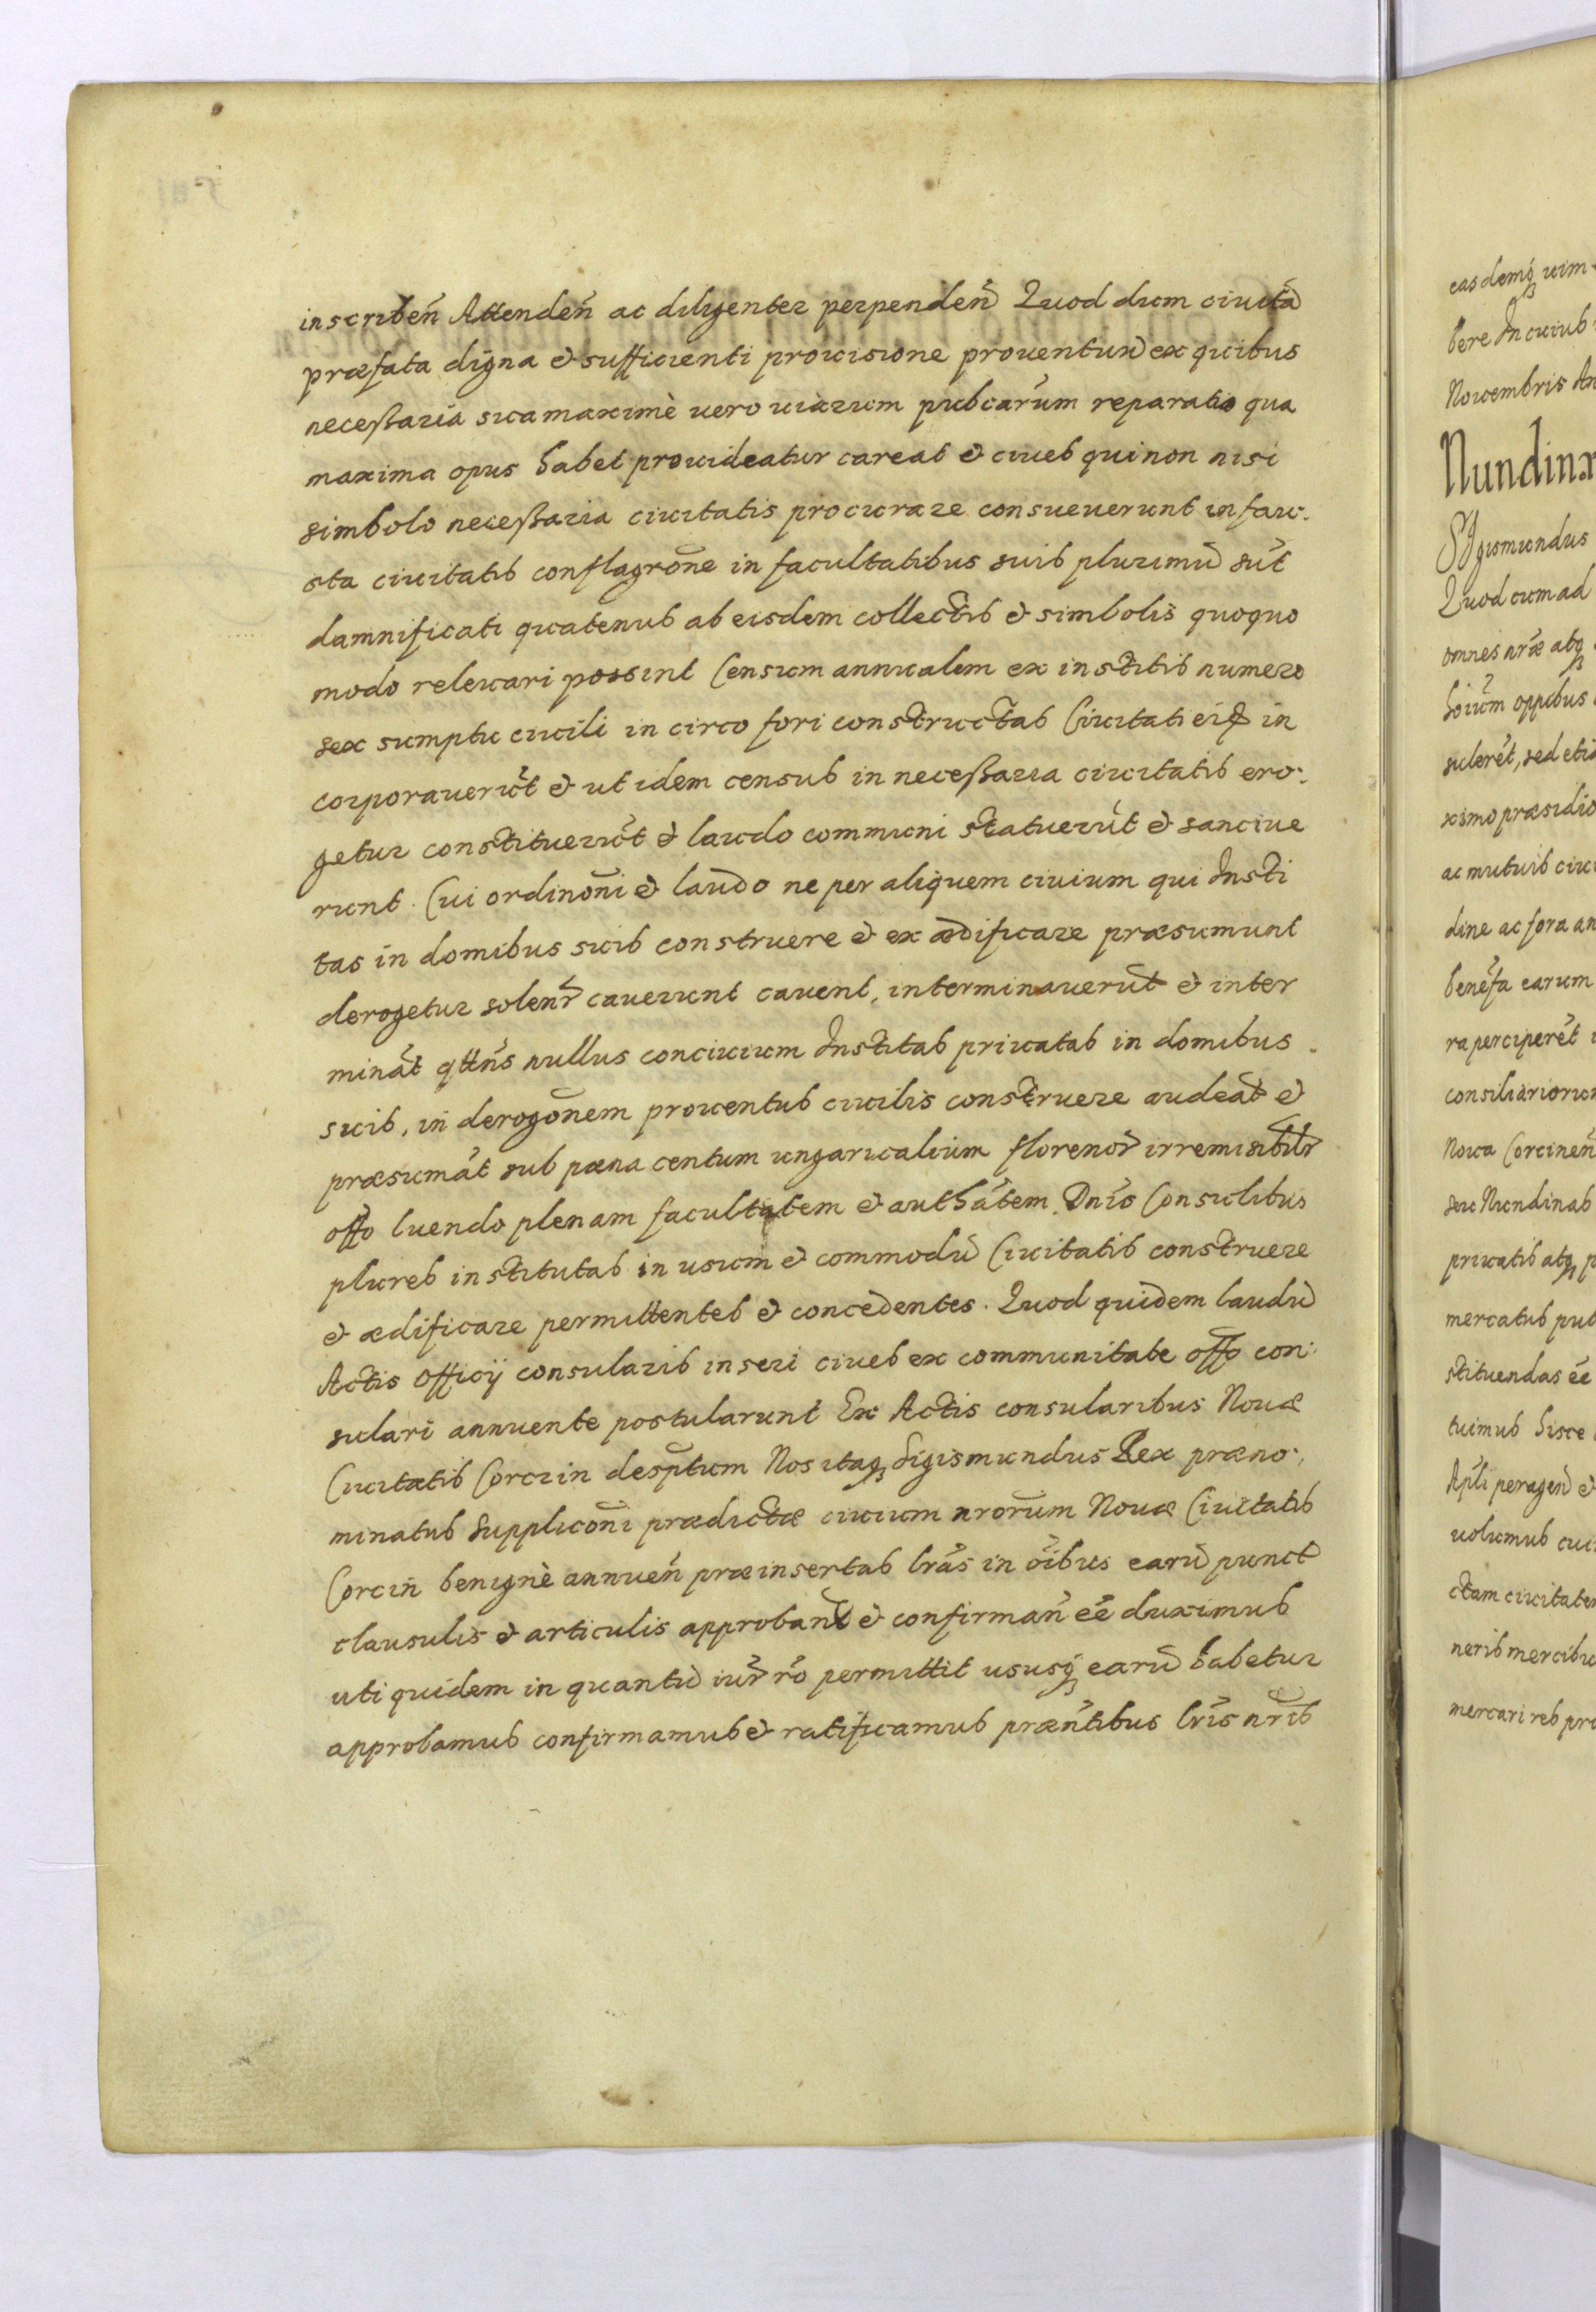 inscribeñ Attendeñ ac diligenter perpendeñ Quod dum ciuita
præfata digna et sufficienti prouisione prouentuu ex quibus
necessaria sua maximè uero uiarum pubcarum reparatio qua
maxima opus habet prouideatur careat et ciues qui non nisi
simbolo necessaria ciuitatis procurare consueuerunt in fau-
sta ciuitatis conflagrone in facultatibus suis plurimū sūt
damnificati quatenus ab eisdem collectis et simbolis quoquo
modo releuari possint Censum annualem ex institis numero
sex sumptu ciuili in circo fori constructas Ciuitati eiq in
corporauerūt et ut idem census in necessaria ciuitatis ero-
getur constituerūt et laudo communi statuerūt et sanciue
runt. Cui ordinoni et laudo ne per aliquem ciuium qui Insti
tas in domibus suis construere et ex ædificare præsumunt
derogetur solenr cauerunt cauent, interminauerūt et inter
mināt qtns nullus conciuium Institas priuatas in domibus
suis, in derogonem prouentus ciuilis construere audeat et
præsumāt sub pæna centum ungaricalium florenor irremisibilr
offo luendo plenam facultatem et authātem Dnis Consulibus
plures institutas in usum et commodū Ciuitatis construere
et ædificare permittentes et concedentes. Quod quidem laudū
Actis Officij consularis inseri ciues ex communitate offo con-
sulari annuente postularunt Ex Actis consularibus Nouæ
Ciuitatis Corcin desptum Nos itaq Sigismundus Rex præno-
minatus Suppliconi prædictæ ciuium nrorum Nouæ Ciuitatis
Corcin benignè annueñ præinsertas lrās in oibus earū punct
clausulis et articulis approband et confirmañ ēē duximus
uti quidem in quantū iur ro permittit ususq earū habetur
approbamus confirmamus et ratificamus præntibus lris nris
easdemq uim
bere In cuius
Nouembris An
Nundinæ
Sigismundus
Quod cum ad
omnes nræ atq
hoium oppibus
suleret, sed etia
ximo præsidio
ac mutuis ciui
dine ac fora an
benefa earum
ra perciperēt
consiliariorum
Noua Corcineñ
seu Nundinas
priuatis atq p
mercatus pub
stituendas ēē
tuimus hisce
Apli peragend et
uolumus cui
ctam ciuitatem
neris mercibu
mercari res pro